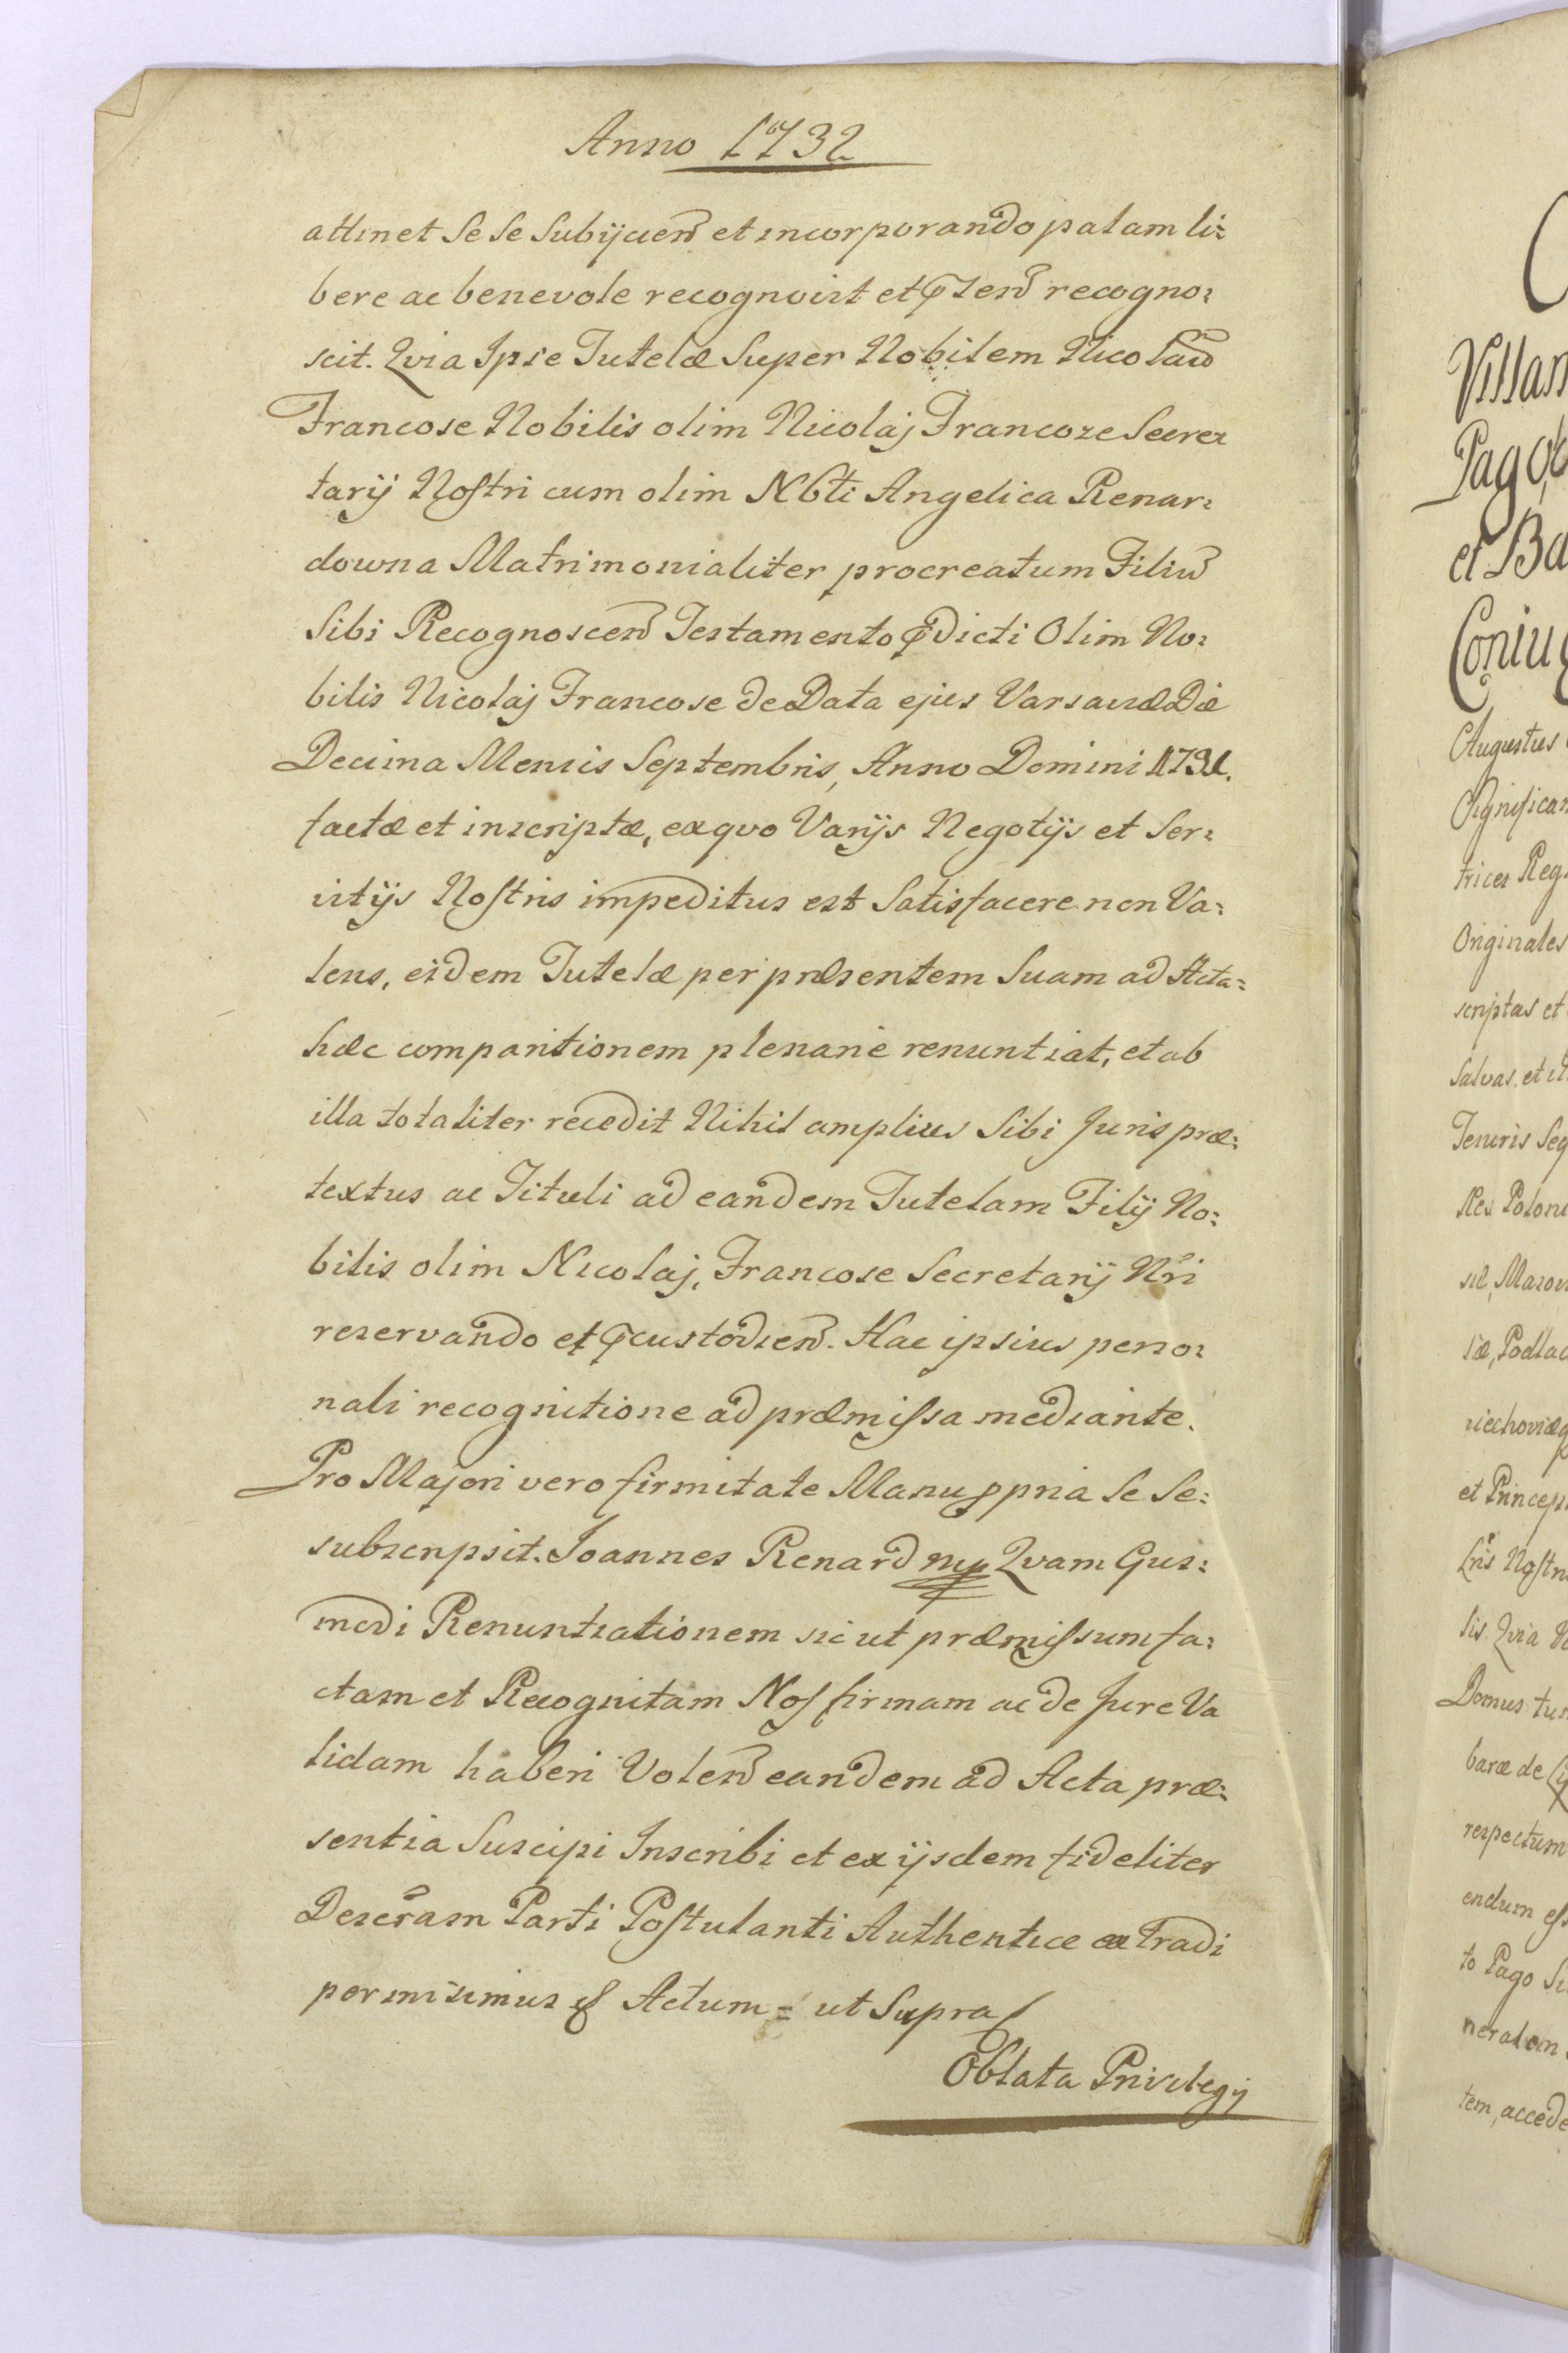 Anno 1732
attinet Se Se Subijcien̄ et incorporando palam li=
bere ac benevole recognovit et p̄sen̄ recogno=
scit. Qvia Ipse Tutelæ Super Nobilem Nicolaū
Francose Nobilis olim Nicolaj Francose Secre=
tarij Nostri cum olim Nbli Angelica Renar=
downa Matrimonialiter procreatum Filiū
Sibi Recognoscen̄ Testamento p̄dicti Olim No=
bilis Nicolaj Francose de Data ejus Varsaviæ Die
Decima Mensis Septembris, Anno Domini 1731.
factæ et inscriptæ, ex qvo Varijs Negotijs et Ser=
vitijs Nostris impeditus est Satisfacere non Va=
lens, eidem Tutelæ per præsentem Suam ad Acta=
hæc comparitionem plenarie renuntiat, et ab
illa totaliter recedit Nihil amplius Sibi Juris præ=
textus ac Tituli ad eandem Tutelam Filij No=
bilis olim Nicolaj, Francose Secretarij Nri
reservando et p̄custodien̄. Hac ipsius perso=
nali recognitione ad præmissa mediante.
Pro Majori vero firmitate Manu ppria Se Se=
subscripsit. Joannes Renard mp Qvam Ejus=
modi Renuntiationem sicut præmissum fa=
ctam et Recognitam Nos firmam ac de Jure Va
lidam haberi Volen̄ eandem ad Acta præ=
sentia Suscipi Inscribi et ex ijsdem fideliter
Descr̄am Parti Postulanti Authentice extradi
permisimus & Actum = ut Supra
Oblata Privilegij
Villam
et Ba
Coniug
Augustus
Significam
trices Reg
Originales
scriptas et
Salvas, et il
Tenoris Seq
Rex Poloni
siæ, Masov
siæ, Podlac
et Princeps
Lris Nostri
lis. Qvia
Domus tu
baræ de
respectum
endum ess
to Pago Su
neralem
tem, accede